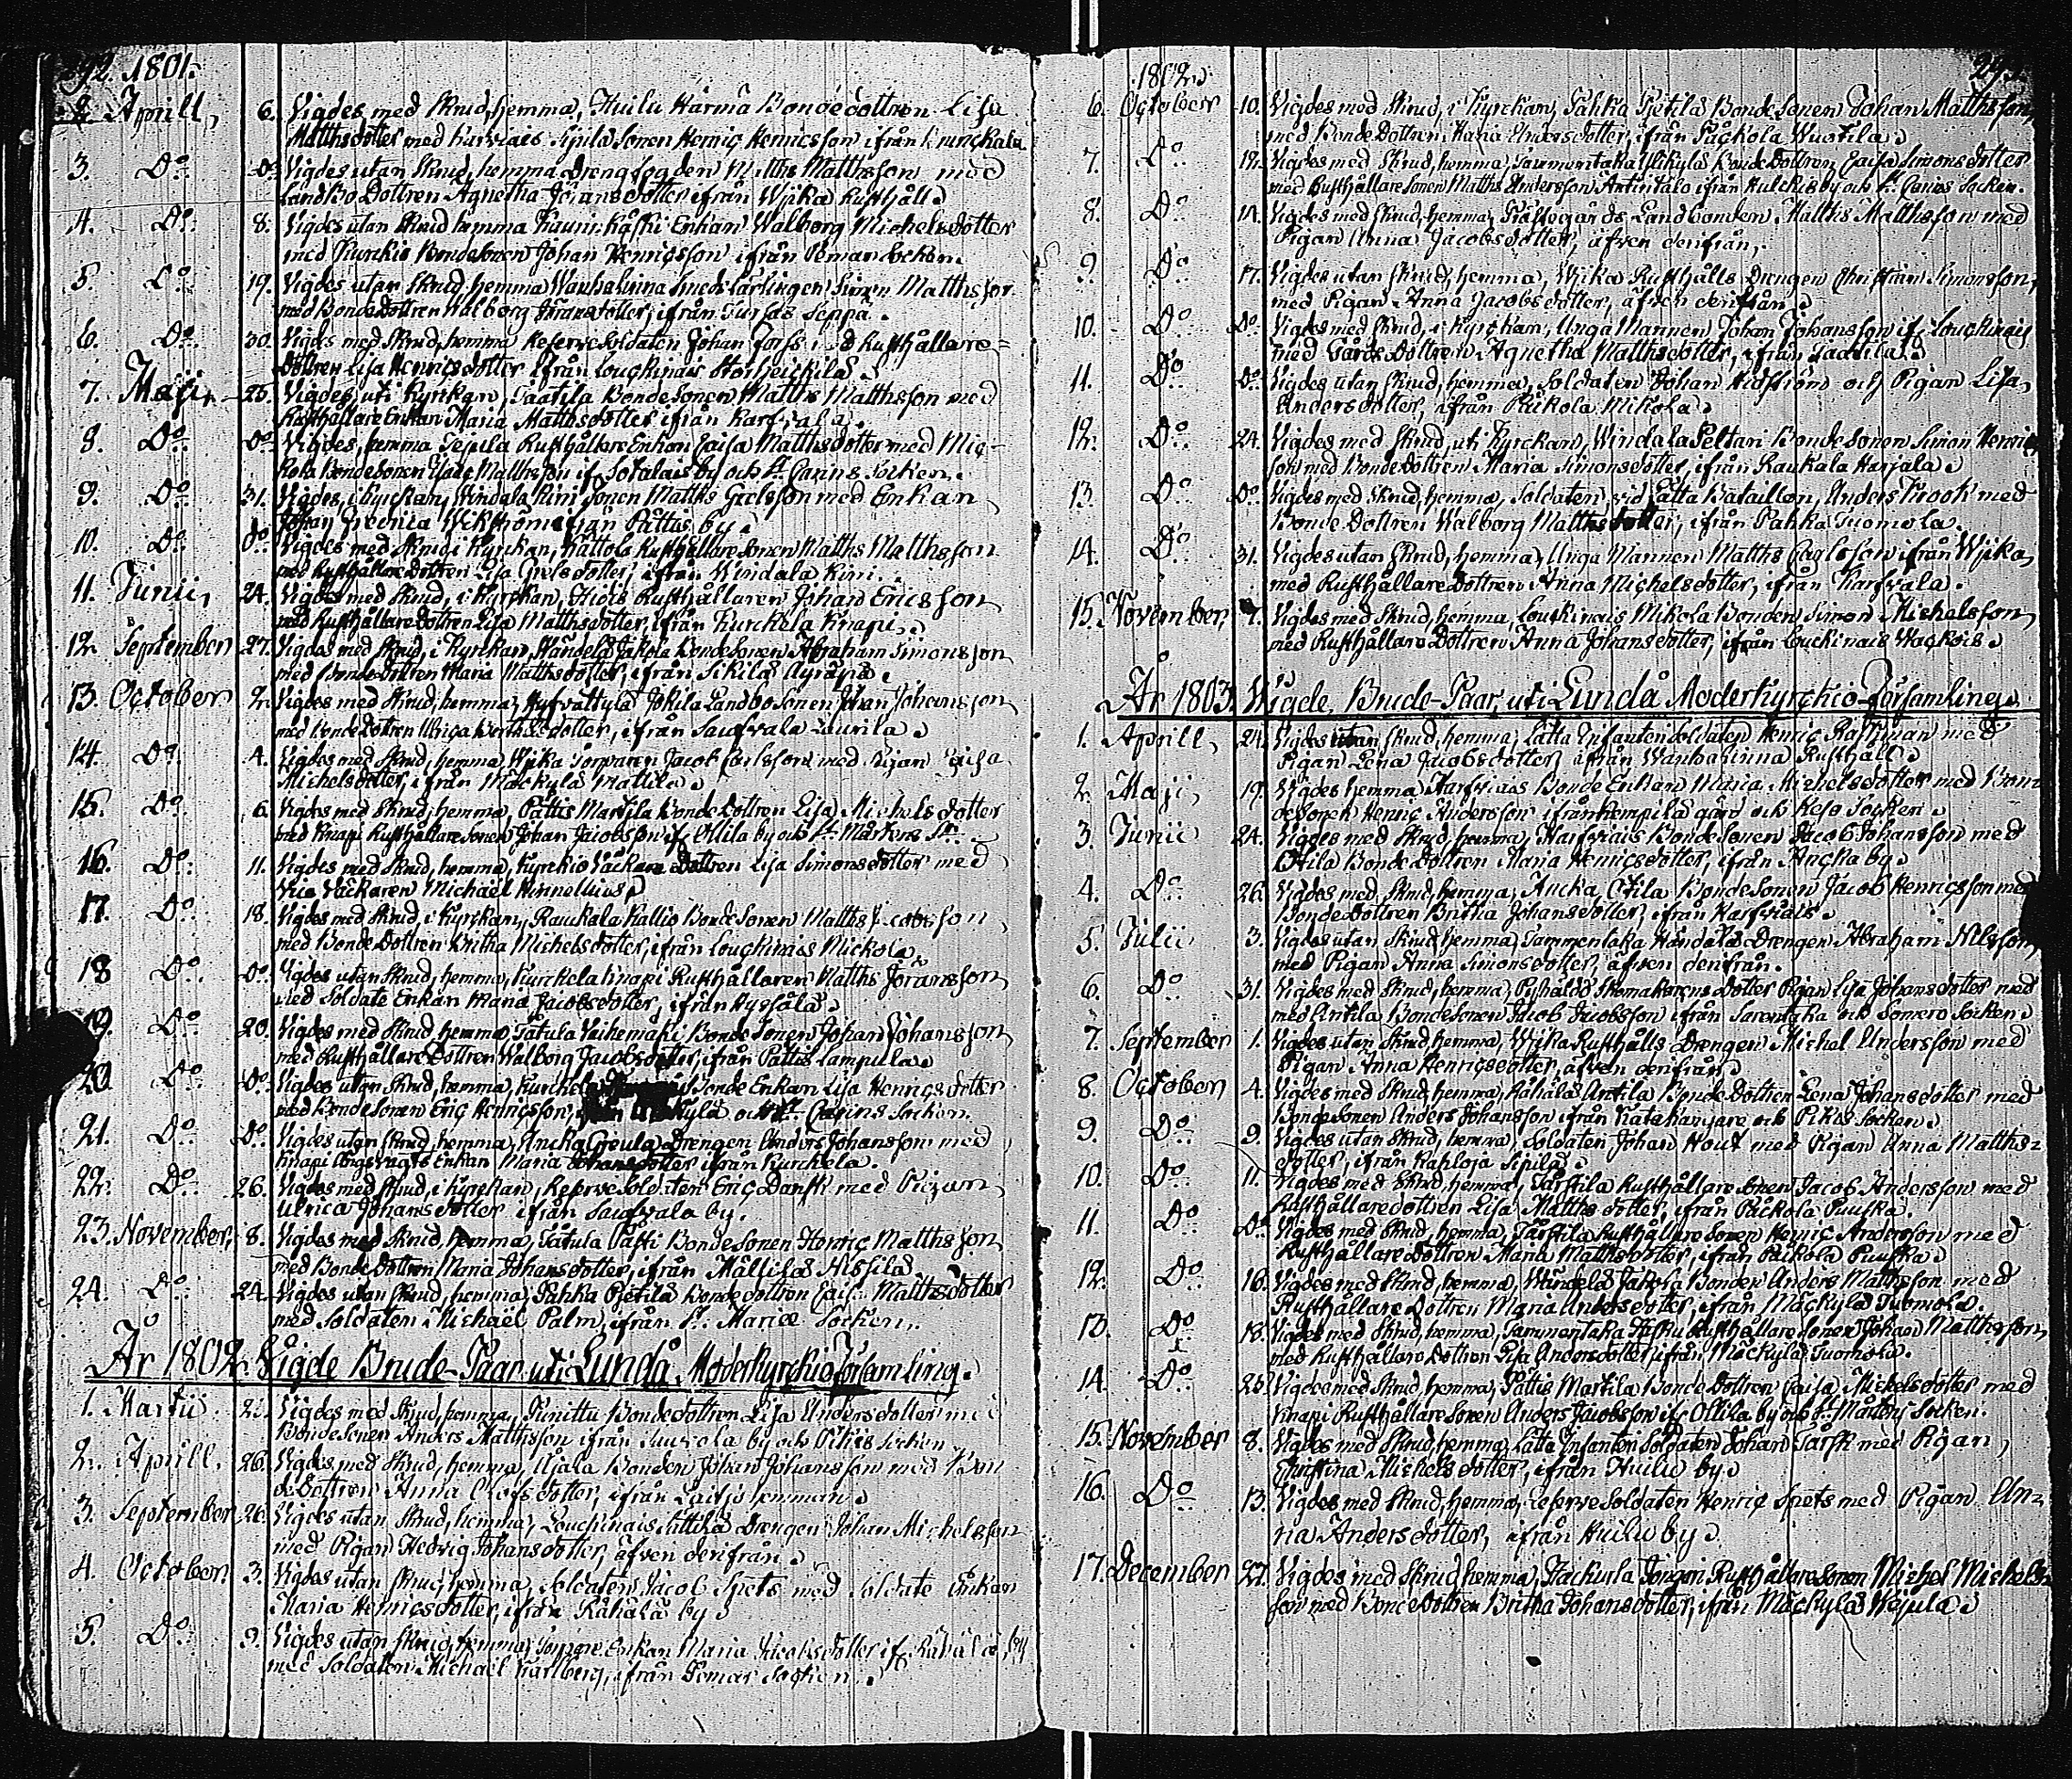 292. 1801.
2. Aprill, 6. Vigdes med Skrud, hemma, Huilu Härmä Bondedottren Lisa
Matthsdotter med Karviais Sipilä Sonen Henric Henricsson ifrån
3. Do Do Vigdes utan Skrud, hemma Drengfogden Matths Matthsson med
Landbo Dottren Agnetha Jöransdotter ifrån Wijka Rusthåll.
4. Do 8. Vigdes utan Skrud hemma Enkan Walborg Michelsdotter
med Kurckio Bondesonen Johan Henricsson ifrån Pemar Socken.
5. Do 19. Vigdes utan Skrud hemma Wanhalinna Smeds Lärlingen Simon Matthsson
med Bonde Dottren Walborg Jöransdotter, ifrån Seppä.
6. Do 30. Vigdes med Skrud, hemma Reserve Soldaten Johan Forss Rusthållare-
Dottren Lisa Henricsdotter ifrån Louckinais Storheickilä.
7. Maji, 25. Vigdes, uti Kyrckan, Taatila Bondesonen Matths Matthsson med
Rusthållare Enkan Maria Matthsdotter ifrån Karfvala.
8. Do Do Vigdes, hemma Sepula Rusthållare Enkan Caisa Matthsdotter med Mic-
kola Bonde Sonen Matthsson if. Sotalais by och St. Carins Socken.
9. Do 31. Vigdes, i Kyrckan, Windala Kini Sonen Matths Grelsson med Enkan
Johan Fredrica Wikström ifrån Pättis by.
10. Do Do Vigdes med Skrud i Kyrckan, Rusthållare Sonen Matths Matthsson
med Rusthållare Dottren Lisa Grelsdotter, ifrån Windala Kini.
11. Junii, 24. Vigdes med Skrud, i Kyrckan, Rusthållaren Johan Ericsson
med Rusthållare Dottren Lisa Matthsdotter, ifrån Kurckela Knapi.
12. September 27. Vigdes med Skrud, i Kyrckan, Händelä Jakola Bonde Sonen Abraham Simonsson
med Bonde Dottren Maria Matthsdotter, ifrån Sikilä Äyräpä.
13. October 2. Vigdes med Skrud, hemma, Hyfvättylä Jokila Landbo Sonen Johan Johansson
med Bonde Dottren Ulrica Berthilsdotter, ifrån Saufvala Laurila.
14. Do 4. Vigdes med Skrud, hemma, Wijka Torparen Jacob Carlsson med Pigan Caisa
Michelsdotter, ifrån Mäckylä Mattila.
15. Do 6. Vigdes med Skrud, hemma, Pättis Martila Bonde Dottren Lisa Michelsdotter
med Knapi Rusthållare Sonen Johan Jacobsson if. Ollila by och St. Martens Sn.
16. Do 11. Vigdes med Skrud, hemma, Kurckio Väckare Dottren Lisa Simonsdotter med
Vice Väckaren Michaël Kinnellius.
17. Do 18. Vigdes med Skrud, i Kyrckan, Raukala Kallio Bonde Sonen Matths Jacobsson,
med Bonde Dottren Britha Michelsdotter, ifrån Louckinais Mickola.
18 Do Do Vigdes utan Skrud, hemma, Kurckela Knapi Rusthållaren Matths Jöransson
med Soldate Enkan Maria Jacobsdotter, ifrån
19. Do 20. Vigdes med Skrud hemma, Tatula Bonde Sonen Johan Johansson
med Rusthållare Dottren Walborg Jacobsdotter, ifrån Pättis Lampula.
20 Do Do Vigdes utan Skrud, hemma, Bonde Enkan Lisa Henricsdotter
med Bonde Sonen Eric Henricsson, kylä och St. Carins Socken.
21. Do Do Vigdes utan Skrud, hemma, Ancka Greula Drengen Anders Johansson med
Knapi Enkan Maria Johansdotter ifrån Kurckela.
22. Do 26. Vigdes med Skrud, i Kyrckan, Reserve Soldaten Eric Dansk med Pigan
Ulrica Johansdotter ifrån Saufvala by.
23. November, 8. Vigdes med Skrud, hemma, Tatula Pässi Bonde Sonen Henric Matthsson
med Bonde Dottren Maria Johansdotter, ifrån Mällilä
24. Do 24. Vigdes utan Skrud, hemma, Pahka Pietilä Bondedottren Caisa Matthsdotter
med Soldaten Michaël Palm, ifrån St. Mariæ Socken.
År 1802. Vigde Brude-Paar, uti Lundå Moderkyrckio Församling.
1. Martii 2. Vigdes med Skrud, hemma, Junittu Bondedottren Lisa Andersdotter med
Bonde Sonen Anders Matthsson ifrån by och Pikis Socken
2. Aprill. 26. Vigdes med Skrud, hemma, Bonden Johan Johansson med Bon-
de Dottren Anna Olofsdotter, ifrån hemman.
3. September 26. Vigdes utan Skrud, hemma, Louckinais Drengen Johan Michelsson
med Pigan Hedvig Johansdotter, äfven derifrån.
4. October 3. Vigdes utan Skrud, hemma, Soldaten Jacob Spets med Soldate Enkan
Maria Henricsdotter, ifrån Rähälä by.
5. Do 9. Vigdes utan Skrud, hemma, Enkan Maria Jacobsdotter if. Rähälä by
med Soldaten Michaël Karlberg, ifrån Pemar Socken.
1802. 293.
6. October 10. Vigdes med Skrud, i Kyrckan, Pahka Pietilä Bonde Sonen Johan Matthsson,
med Bonde Dottren Maria Andersdotter, ifrån Päckola
7. Do 12. Vigdes med Skrud, hemma, Tammentaka Ylikylä Bonde Dottren Caisa Simonsdotter
med Rusthållare Sonen Matths Andersson Äntintalo ifrån by och St. Carins Socken.
8. Do 14. Vigdes med Skrud, hemma, Prästegårds Landbonden Matths Matthsson med
Pigan Anna Jacobsdotter, äfven derifrån.
9 Do 17. Vigdes utan Skrud, hemma, Wijka Rusthålls Drengen Christian Simonsson,
med Pigan Anna Jacobsdotter, äfven derifrån.
10. Do Do Vigdes med Skrud, i Kyrckan, Unga Mannen Johan Johansson if. Louckinais
med Gårds Dottren Agnetha Matthsdotter, ifrån Taatila.
11. Do Do Vigdes utan Skrud, hemma, Soldaten Johan och Pigan Lisa
Andersdotter, ifrån Päikola Mikola.
12. Do 24. Vigdes med Skrud, uti Kyrckan, Windala Peltari Bonde Sonen Simon Henrics-
son med Bonde Dottren Maria Simonsdotter, ifrån Raukala Harjala.
13. Do Do Vigdes med Skrud, hemma, Soldaten vid Lätta Bataillon, Anders Krook med
Bonde Dottren Walborg Matthsdotter, ifrån Pahka Tuomola.
14. Do 31. Vigdes utan Skrud, hemma, Unga Mannen Matths Carlsson ifrån Wijka
med Rusthållare Dottren Anna Michelsdotter, ifrån Karfvala.
15. November, 7. Vigdes med Skrud, hemma, Louckinais Mikola Bonden Simon Michelsson
med Rusthållare Dottren Anna Johansdotter, ifrån Louckinais Wäckois.
År 1803. Vigde Brude-Paar, uti Lundå Moderkyrckio Församling.
1. Aprill, 24. Vigdes utan Skrud, hemma, Lätta Infanteri Soldaten Henric Raftman med
Pigan Lena Jacobsdotter, ifrån Wanhalinna Rusthåll.
2. Maji, 19. Vigdes hemma, Karfviais Bonde Enkan Maria Michelsdotter med Bon-
de Sonen Henric Andersson ifrån gård och Socken.
3. Junii 24. Vigdes med Skrud, hemma, Karfviais Bonde Sonen Jacob Johansson med
Ottila Bonde Dottren Maria Henricsdotter, ifrån Ancka by.
4. Do 26. Vigdes med Skrud, hemma, Ancka Ottila Bonde Sonen Jacob Henricsson med
Bonde Dottren Britha Johansdotter, ifrån Karfviais.
5. Julii 3. Vigdes utan Skrud, hemma, Tammentaka Händälä Drengen Abraham Nilsson
med Pigan Anna Simonsdotter, äfven derifrån.
6. Do 31. Vigdes med Skrud, hemma, Skomakarens dotter Pigan Lisa Johansdotter med
Antila Bonde Sonen Jacob Jacobsson ifrån Sarentaka och Somero Socken.
7. September 1. Vigdes utan Skrud, hemma, Wijka Rusthålls Drengen Michel Andersson med
Pigan Anna Henricsdotter, äfven derifrån.
8. October 4. Vigdes med Skrud, hemma, Rähälä Antila Bonde Dottren Lena Johansdotter med
Bonde Sonen Anders Johansson ifrån och Pikis Socken.
9. Do 9. Vigdes utan Skrud, hemma, Soldaten Johan Hout med Pigan Anna Matths-
dotter, ifrån Kahloja Sipilä.
10. Do 11. Vigdes med Skrud, hemma, Tarstila Rusthållare Sonen Jacob Andersson med
Rusthållaredottren Lisa Matthsdotter, ifrån Päckola Puuska.
11. Do Do Vigdes med Skrud, hemma, Tarstila Rusthållare Sonen Henric Andersson med
Rusthållare Dottren Maria Matthsdotter, ifrån Päikola Puuska.
12. Do 16. Vigdes med Skrud, hemma, Händelä Jakola Bonden Anders Matthsson med
Rusthållare Dottren Maria Andersdotter, ifrån Mäckylä Tuomola.
13. Do 18. Vigdes med Skrud, hemma, Tammentaka Rusthållare Sonen Johan Matthsson
med Rusthållare Dottren Lisa Andersdotter, ifrån Mäckylä Tuomola.
14. Do 25. Vigdes med Skrud, hemma, Pättis Martila Bonde Dottren Caisa Michelsdotter med
Knapi Rusthållare Sonen Anders Jacobsson if. Ollila by och St. Mårtens Socken.
15. November 8. Vigdes med Skrud, hemma, Lätta Infanteri Soldaten Johan Tarsk med Pigan
Christina Michelsdotter, ifrån Huilu by.
16. Do 13. Vigdes med Skrud, hemma, Reserve Soldaten Henric Spets med Pigan An-
na Andersdotter, ifrån Huilu by.
17. December 27. Vigdes med Skrud, hemma, Rusthållare Sonen Michel Michels-
son med Bonde Dottren Britha Johansdotter, ifrån Mäckylä